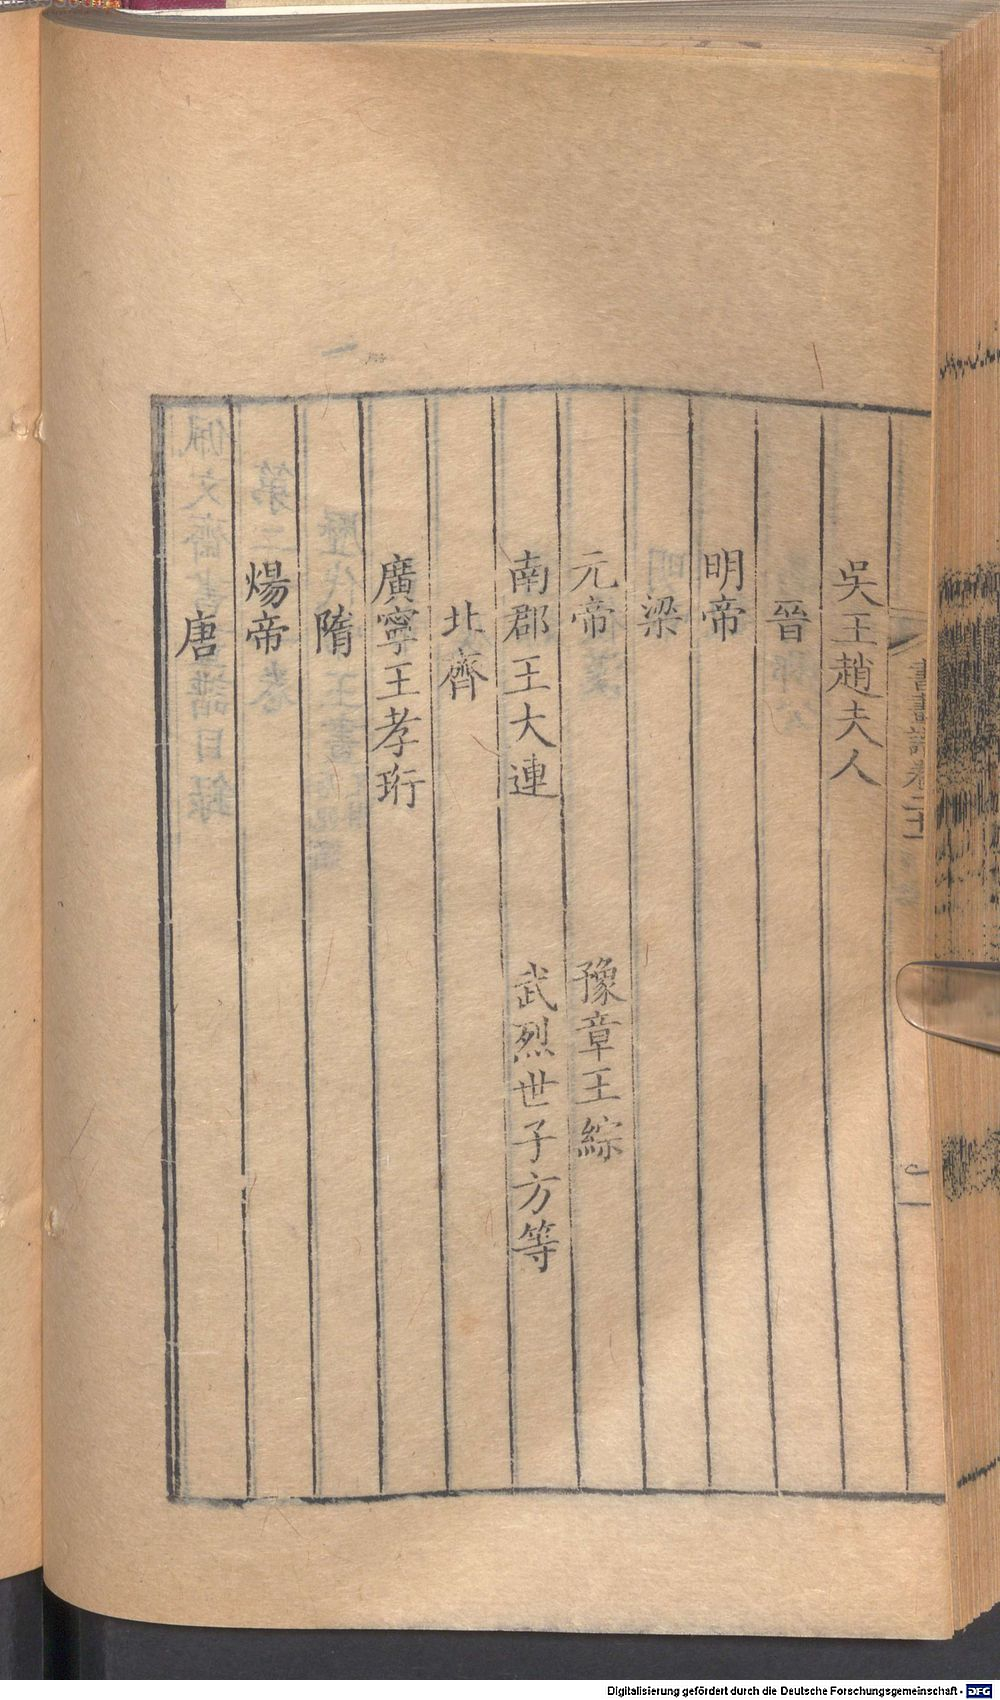 吳王趙夫人
晉
明帝
梁
元帝　豫章王綜
南郡王大連　武烈世子方等
北齊
廣寧王孝珩
隋
煬帝
唐
書畫譜卷二十
Digitalisierung gefördert durch die Deutsche Forschungsgemeinschaft - DFG